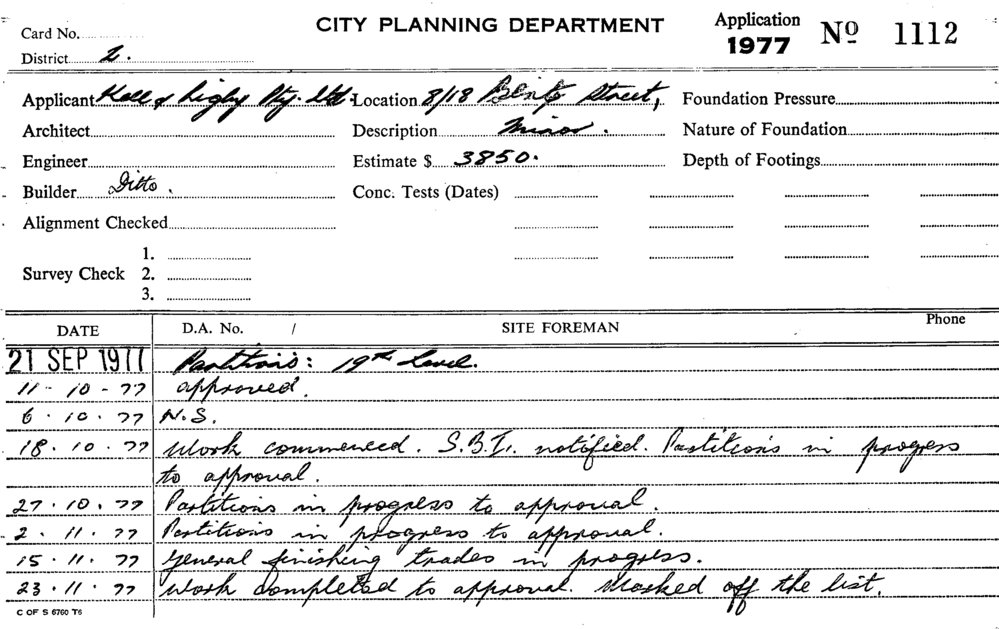 CITY PLANNING DEPARTMENT
Application
1977 Nº 1112
Card No.
District 2.
Applicant Kell & Rigby Pty. Ltd. Location 8/18 Bent Street, Foundation Pressure
Architect Description Minor. Nature of Foundation
Engineer Estimate $ 3850. Depth of Footings
Builder Ditto. Conc. Tests (Dates)
Alignment Checked
Survey Check 1.
2.
3.
DATE D.A. No. / SITE FOREMAN Phone
21 SEP 1977 Partitions: 19th Level.
11-10-77 approved.
6.10.77 N.S.
18.10.77 Work commenced. S.B.I. notified. Partitions in progress
to approval.
27.10.77 Partitions in progress to approval.
2.11.77 Partitions in progress to approval.
15.11.77 General finishing trades in progress.
23.11.77 Work completed to approval. Marked off the list.
C OF S 6760 T6